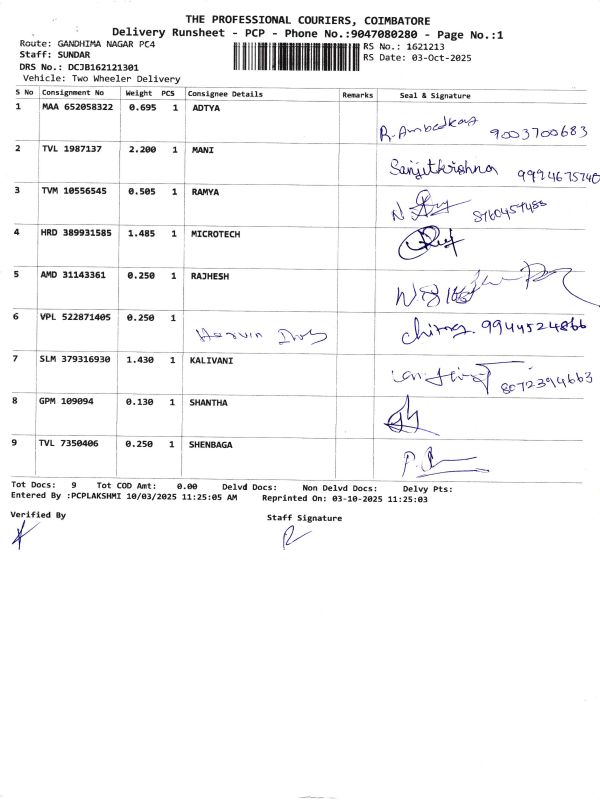 THE PROFESSIONAL COURIERS, COIMBATORE
Delivery Runsheet - PCP - Phone No.:9047080280 - Page No.:1
Route: GANDHIMA NAGAR PC4
Staff: SUNDAR
DRS No.: DCJB162121301
Vehicle: Two Wheeler Delivery
RS No.: 1621213
RS Date: 03-Oct-2025
S No Consignment No Weight PCS Consignee Details Remarks Seal & Signature
1 MAA 652058322 0.695 1 ADTYA
R. Ambedkar 9003700683
2 TVL 1987137 2.200 1 MANI
Sanjitkrishna 9994675740
3 TVM 10556545 0.505 1 RAMYA
8760457488
4 HRD 389931585 1.485 1 MICROTECH
5 AMD 31143361 0.250 1 RAJHESH
6 VPL 522871405 0.250 1
9944524866
7 SLM 379316930 1.430 1 KALIVANI
8072394663
8 GPM 109094 0.130 1 SHANTHA
9 TVL 7350406 0.250 1 SHENBAGA
Tot Docs: 9 Tot COD Amt: 0.00 Delvd Docs: Non Delvd Docs: Delvy Pts:
Entered By :PCPLAKSHMI 10/03/2025 11:25:05 AM Reprinted On: 03-10-2025 11:25:03
Verified By
Staff Signature